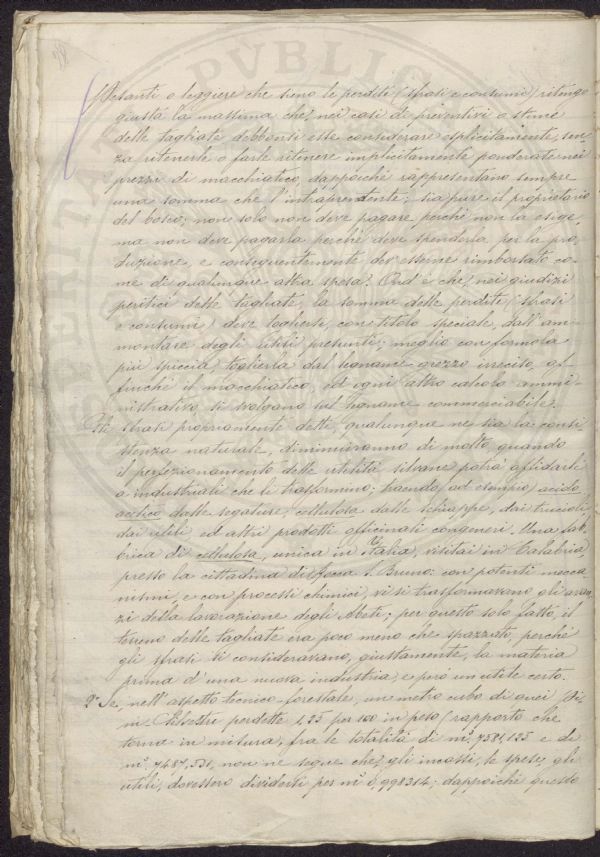 Pesanti o leggiere che sieno le perdite (sfrasi e consumi) ritengo
giusta la massima che, nei casi di preventivi o stime
delle tagliate debbonsi esse considerare esplicitamente, sen-
za ritenerle o farle ritenere implicitamente ponderate nei
prezzi di macchiatico, dappoichè rappresentano sempre
una somma che l'intraprendente, sia pure il proprietario
del bosco, non solo non deve pagare perchè non la esige,
ma non deve pagarla perchè deve spenderla per la pro-
duzione, e conseguentemente dev'esserne rimborsato co-
me di qualunque altra spesa. Ond'è che, nei giudizi
peritici delle tagliate, la somma delle perdite (sfrasi
e consumi) deve togliersi, con titolo speciale, dall'am-
montare degli utili presunti; meglio con formola
più spiccia, toglierla dal legname grezzo irrecito, af-
finchè il macchiatico, ed ogni altro calcolo ammi-
nistrativo, si svolgano sul legname commerciabile.
Gli sfrasi propriamente detti, qualunque ne sia la consi-
stenza naturale, diminuiranno di molto quando
il perfezionamento delle utilità silvane potrà affidarli
a industriali che li trasformino; traendo, ad esempio, acido
acetico dalle segature, cellulosa dalle schiappe, dai trucioli,
dai utili, ed altri prodotti officinali congeneri. Una fab-
brica di cellulosa, unica in Italia, visitai in Calabria,
presso la cittadina di Serra S. Bruno: con potenti mecca-
nismi, e con processi chimici, vi si trasformavano gli avan-
zi della lavorazione degli Abeti; per questo solo fatto, il
terreno delle tagliate era poco meno che spazzato, perchè
gli sfrasi si consideravano, giustamente, la materia
prima d'una nuova industria, e però un utile certo.
2º Se, nell'aspetto tecnico-forestale, un metro cubo di quei Pi-
ni Silvestri perdette 1,25 per 100 in peso (rapporto che
torna in misura, fra le totalità di m³ 7581,125 e di
m³ 7487,531, non ne segue che, gli incassi, le spese, gli
utili, dovessero dividersi per m³ 0,998314; dappoichè questo